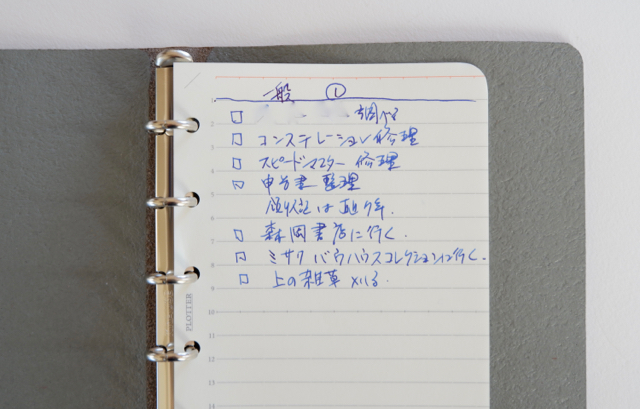 一般 ①
調べる
コンステレーション修理
スピードマスター 修理
申告書 整理
領収証は 過去7年.
森岡書店に行く.
ミサワ バウハウスコレクションに行く.
上の雑草 刈る.
PLOTTER